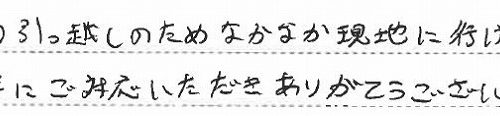 引っ越しのためなかなか現地に行け
にご対応いただきありがとうござい